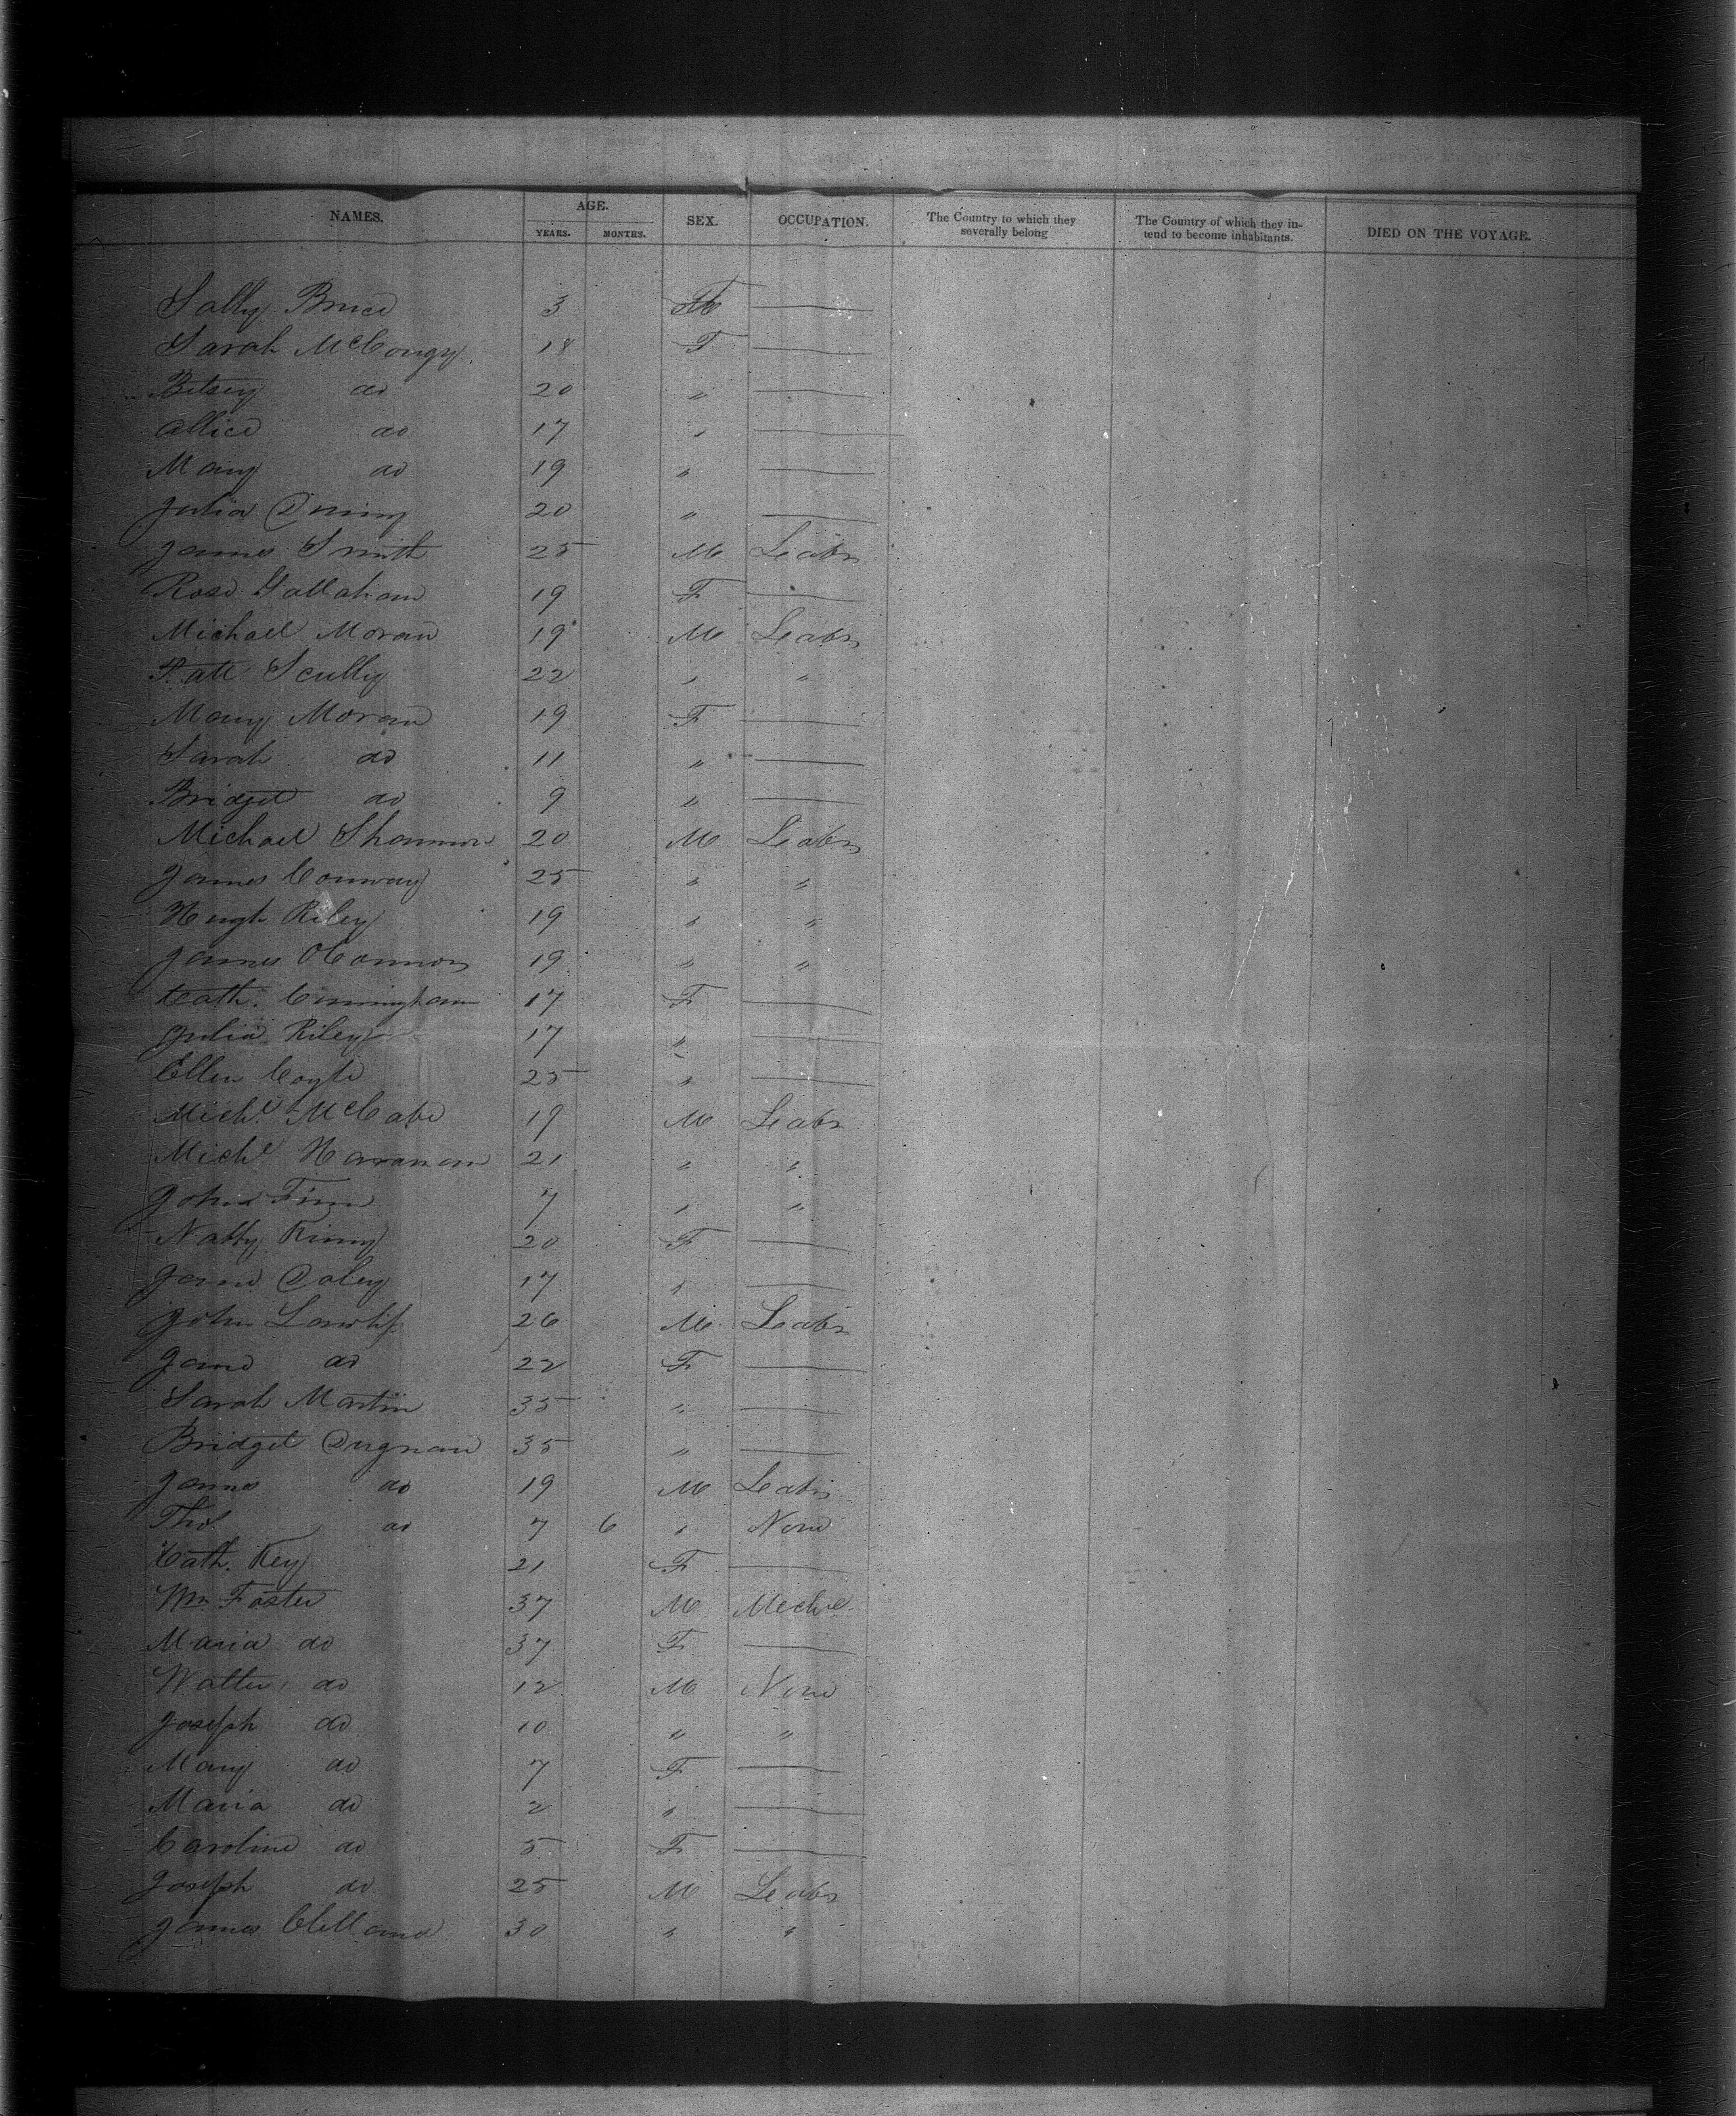 NAMES. AGE. YEARS. MONTHS. SEX. OCCUPATION. The Country to which they severally belong The Country of which they intend to become inhabitants. DIED ON THE VOYAGE.
Sally Bruce 3 F ——
Sarah McCongy 18 F ——
Betsey do 20 " ——
Allice do 17 " ——
Mary do 19 " ——
Julia 20 " ——
James Smith 25 M Leabr
Rose Gallaham 19 F ——
Michael Moran 19 M Leabr
Patt Scully 22 " "
Mary Moran 19 F ——
Sarah do 11 " ——
Bridget do 9 " ——
Michael Shannon 20 M Leabr
James Conway 25 " "
Hugh Riley 19 " "
James OConnor 19 " "
Cath. Cunningham 17 F ——
Julia Riley 17 " ——
Ellen Coyle 25 " ——
Michl McCabe 19 M Leabr
Michl 21 " "
John Finn 7 " "
Natty Kinny 20 F ——
Jane Daley 17 " ——
John 26 M Leabr
Jane do 22 F ——
Sarah Martin 35 " ——
Bridget Dugnan 35 " ——
James do 19 M Leabr
Thos do 7 6 " None
Cath. Key 21 F ——
Wm Foster 37 M Mechc
Maria do 37 F ——
Walter do 12 M None
Joseph do 10 " "
Mary do 7 F ——
Maria do 2 " ——
Caroline do 5 F ——
Joseph do 25 M Leabr
James Clelland 30 " "